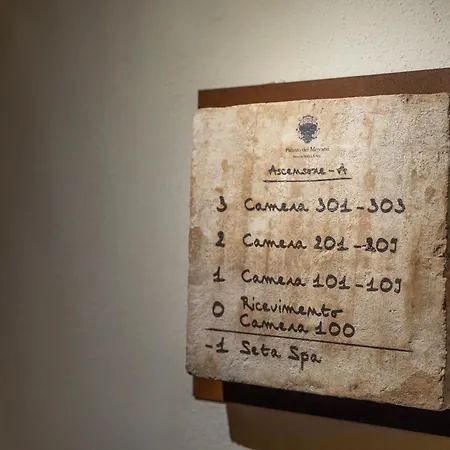 Palazzo dei Mercanti
Ascensore - A
3 Camera 301-303
2 Camera 201-209
1 Camera 101-109
0 Ricevimento
Camera 100
-1 Seta Spa